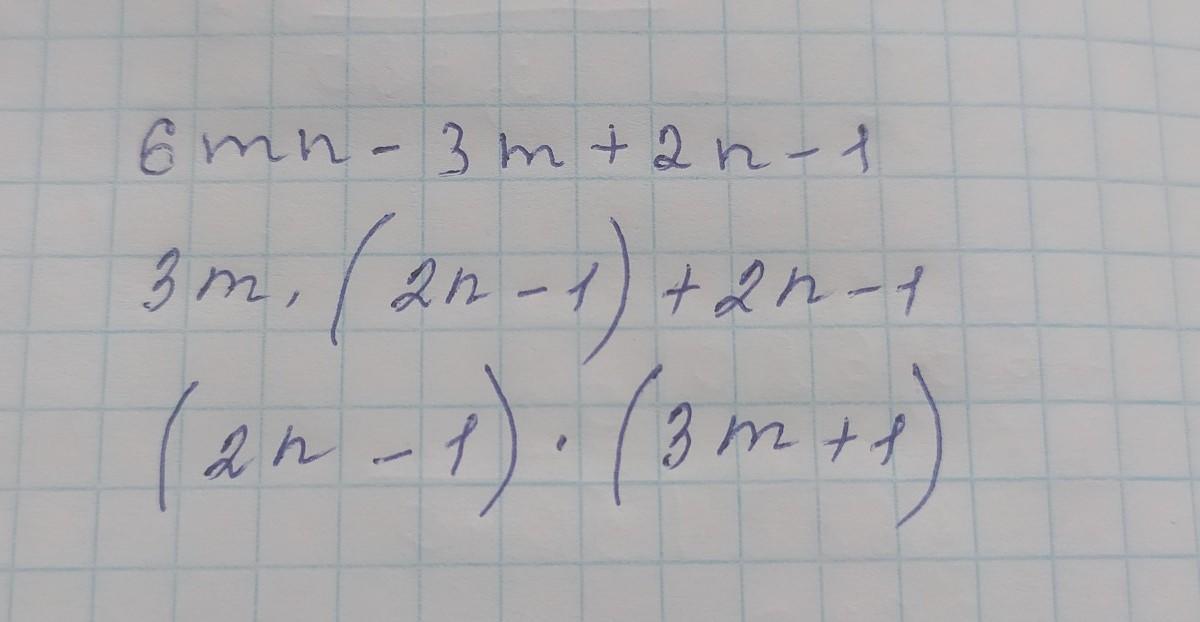 6mn - 3m + 2n - 1
3m · (2n - 1) + 2n - 1
(2n - 1) · (3m + 1)